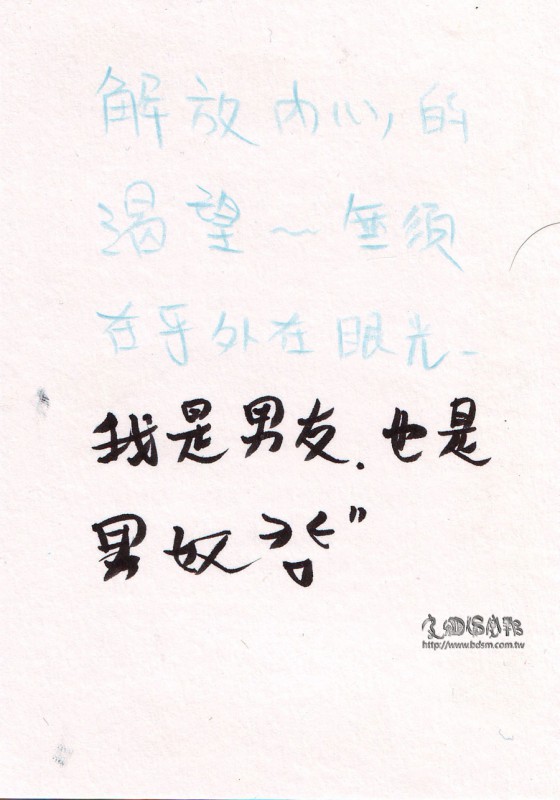 解放內心的
渴望～無須
在乎外在眼光-
我是男友.也是
男奴
http://www.bdsm.com.tw